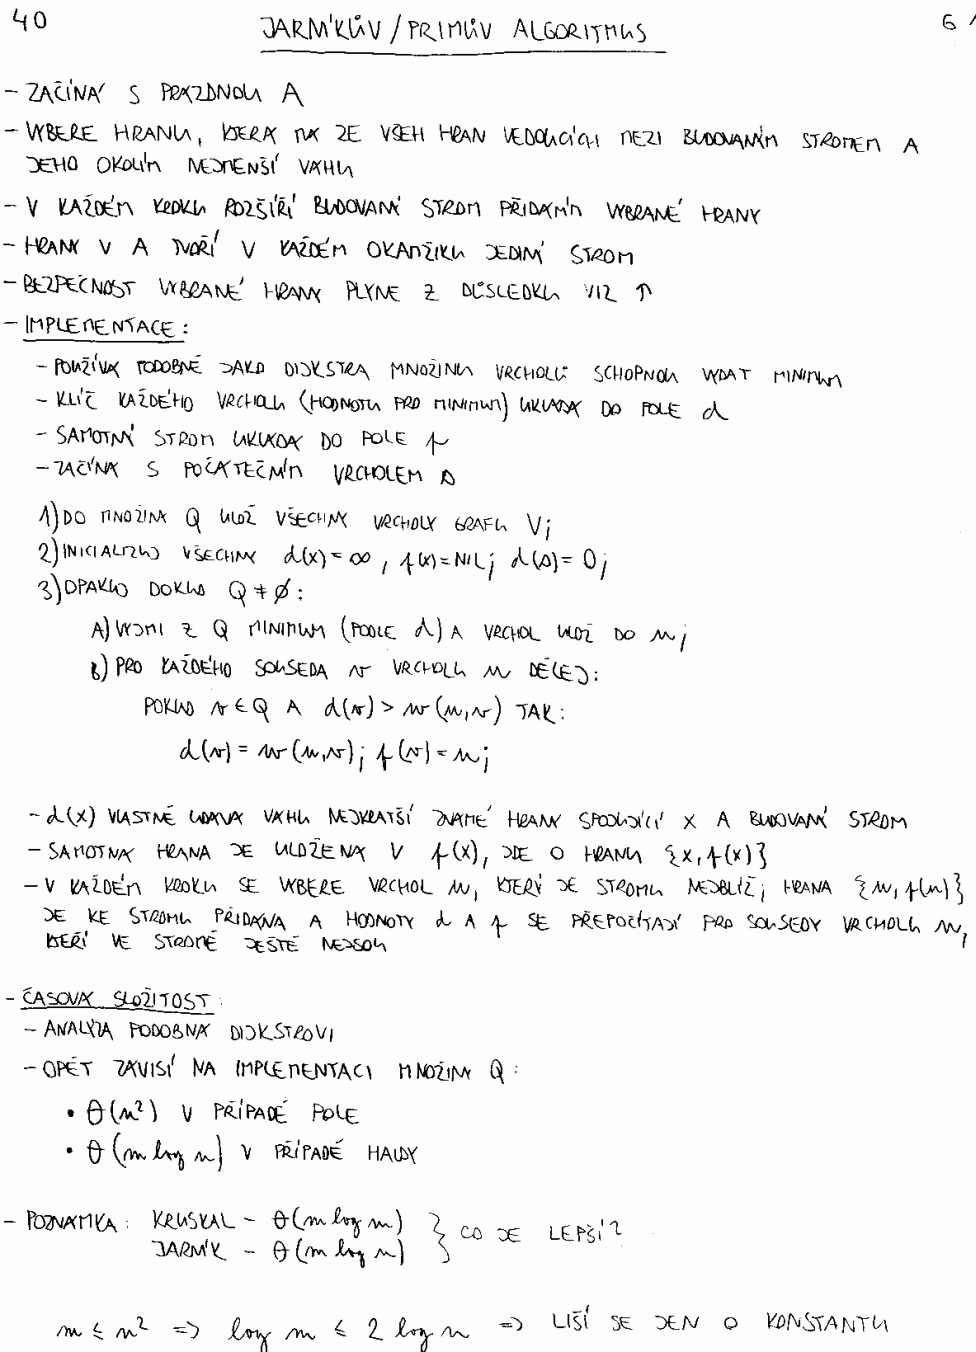 40
JARNÍKŮV/PRIMŮV ALGORITMUS
6
- ZAČÍNÁ S PRÁZDNOU A
- VYBERE HRANU, KTERÁ MÁ ZE VŠECH HRAN VEDOUCÍCH MEZI BUDOVANÝM STROMEM A
JEHO OKOLÍM NEJMENŠÍ VÁHU
- V KAŽDÉM KROKU ROZŠÍŘÍ BUDOVANÝ STROM PŘIDÁNÍM VYBRANÉ HRANY
- HRANY V A TVOŘÍ V KAŽDÉM OKAMŽIKU JEDINÝ STROM
- BEZPEČNOST VYBRANÉ HRANY PLYNE Z DŮSLEDKU VIZ ↑
- IMPLEMENTACE:
- POUŽÍVÁ PODOBNĚ JAKO DIJKSTRA MNOŽINU VRCHOLŮ SCHOPNOU VYDAT MINIMUM
- KLÍČ KAŽDÉHO VRCHOLU (HODNOTU PRO MINIMUM) UKLÁDÁ DO POLE d
- SAMOTNÝ STROM UKLÁDÁ DO POLE p
- ZAČÍNÁ S POČÁTEČNÍM VRCHOLEM s
1) DO MNOŽINY Q ULOŽ VŠECHNY VRCHOLY GRAFU V;
2) INICIALIZUJ VŠECHNY d(x) = ∞, p(x) = NIL; d(s) = 0;
3) OPAKUJ DOKUD Q ≠ ∅:
A) VYJMI Z Q MINIMUM (PODLE d) A VRCHOL ULOŽ DO u;
B) PRO KAŽDÉHO SOUSEDA v VRCHOLU u DĚLEJ:
POKUD v ∈ Q A d(v) > w(u,v) TAK:
d(v) = w(u,v); p(v) = u;
- d(x) VLASTNĚ UDÁVÁ VÁHU NEJKRATŠÍ ZNÁMÉ HRANY SPOJUJÍCÍ X A BUDOVANÝ STROM
- SAMOTNÁ HRANA JE ULOŽENA V p(x), JDE O HRANU {x, p(x)}
- V KAŽDÉM KROKU SE VYBERE VRCHOL u, KTERÝ JE STROMU NEJBLÍŽ; HRANA {u, p(u)}
JE KE STROMU PŘIDÁNA A HODNOTY d A p SE PŘEPOČÍTAJÍ PRO SOUSEDY VRCHOLU u,
KTEŘÍ VE STROMĚ JEŠTĚ NEJSOU
- ČASOVÁ SLOŽITOST:
- ANALÝZA PODOBNÁ DIJKSTROVI
- OPĚT ZÁVISÍ NA IMPLEMENTACI MNOŽINY Q:
• Θ(n²) V PŘÍPADĚ POLE
• Θ(m log n) V PŘÍPADĚ HALDY
- POZNÁMKA: KRUSKAL - Θ(m log m) } CO JE LEPŠÍ?
JARNÍK - Θ(m log n)
m ≤ n² => log m ≤ 2 log n => LIŠÍ SE JEN O KONSTANTU